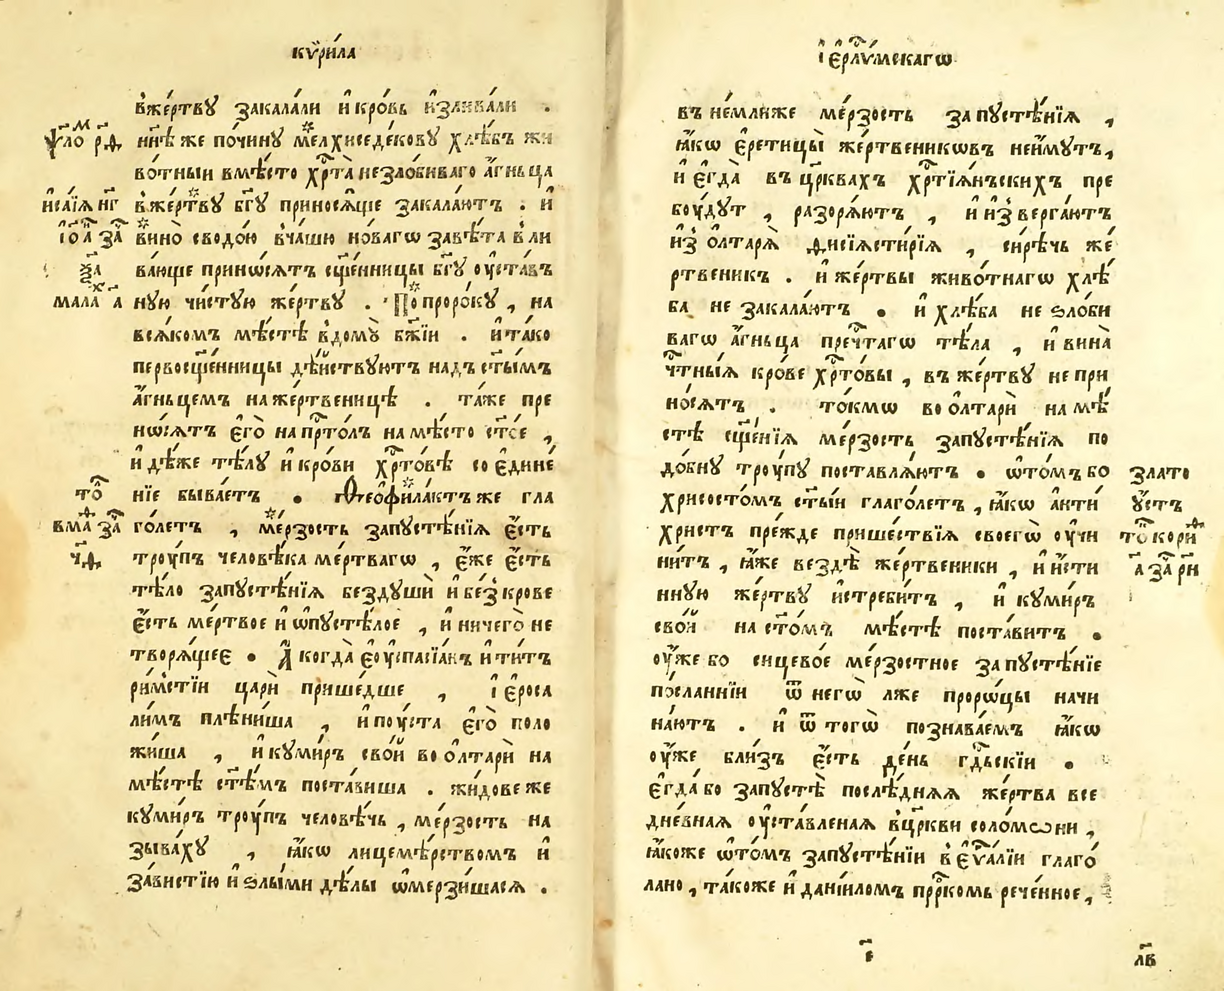 кѷри́ла
вже́ртвꙋ закала́ли и҆ кро́вь и҆злива́ли .
ѱало́ р҃ѳ
нн҃ѣ же по́чинꙋ ме́лхиседе́ковꙋ хлѣ́бъ жи
во́тныи вмѣ́сто хр҃та̀ незло́биваго а҆́гньца
и҆са́їѧ н҃г
вже́ртвꙋ бг҃ꙋ приносѧ́щїе закала́ютъ . и҆
вино̀ сводо́ю вча́шю но́вагѡ завѣ́та в̾ли
ва́юще прино́сѧтъ сщ҃е́нницы бг҃ꙋ оу҆ста́въ
мала́х а҃
нꙋю чи́стꙋю же́ртвꙋ . По проро́кꙋ , на
всѧ́комъ мѣ́стѣ в̾домꙋ̀ бж҃їи . и҆ та́ко
первосщ҃е́нницы дѣ́йствꙋютъ надъ ст҃ы́мъ
а҆́гньцемъ на же́ртвеницѣ . та́же пре
но́сѧтъ є҆го̀ на пр҃то́лъ на мѣ́сто ст҃о́е ,
и҆дѣ́же тѣ́лꙋ и҆ кро́ви хр҃то́вѣ соедине́
нїе быва́етъ . Ѳеофила́ктъ же гла
го́летъ , ме́рзость запꙋстѣ́нїѧ є҆́сть
трꙋ́пъ человѣ́ка ме́ртвагѡ , є҆́же є҆́сть
тѣ́ло запꙋстѣ́нїѧ бездꙋшѝ и҆ без̾ крове
є҆́сть ме́ртвое и҆ ѡ҆пꙋстѣ́лое , и҆ ничего̀ не
творѧ́щеє . А҆ когда̀ є҆оуспасїа́нъ и҆ ти́тъ
ри́мстїи царѝ прише́дше , і҆ероса
ли́мъ плѣни́ша , и҆ по́уста є҆го̀ поло
жи́ша , и҆ кꙋми́ръ сво́й во ѻ҆лтарѝ на
мѣ́стѣ ст҃ѣ́мъ поста́виша . жи́дове же
кꙋми́ръ трꙋ́пъ человѣ́чь , ме́рзость на
зыва́хꙋ , ꙗ҆́кѡ лицемѣ́рствомъ и҆
за́вистїю и҆ ѕлы́ми дѣ́лы ѡ҆мерзи́шасѧ .
і҆ єрл҃ѵ́мскагѡ
въ не́мли́же ме́рзость запꙋстѣ́нїѧ ,
ꙗ҆́кѡ є҆ретицы̀ же́ртвеникѡвъ не и҆́мꙋтъ ,
и҆ є҆гда̀ въ цр҃квахъ хр҃тїѧ́нъскихъ пре
бꙋ́дꙋт , разорѧ́ютъ , и҆ и҆з̾верга́ютъ
и҆з̾ ѻ҆лтарѧ̀ ѳисїѧсти́рїѧ , си́рѣчь же́
ртвеникъ . и҆ же́ртвы живо́тнагѡ хлѣ́
ба не закала́ютъ . и҆ хлѣ́ба не ѕло́би
вагѡ а҆́гньца пречⷭ҇тагѡ тѣ́ла , и҆ вина̀
чⷭ҇тны́ѧ кро́ве хр҃то́вы , въ же́ртвꙋ не при
но́сѧтъ . то́кмѡ во ѻ҆лтарѝ на мѣ́
стѣ сщ҃е́нїѧ ме́рзость запꙋстѣ́нїѧ по
до́бнꙋ трꙋ́пꙋ поставлѧ́ютъ . ѡ҆то́мъ бо
злато
хрисосто́мъ ст҃ы́и глаго́летъ , ꙗ҆́кѡ а҆нти́
ꙋ҆́стъ
христъ пре́жде прише́ствїѧ своегѡ̀ оу҆чи
ни́тъ , ꙗ҆́же вездѣ̀ же́ртвеники , и҆ и҆́сти
ннꙋю же́ртвꙋ и҆стреби́тъ , и҆ кꙋми́ръ
сво́й на ст҃о́мъ мѣ́стѣ поста́витъ .
оу҆́же бо сицево́е ме́рзостное запꙋстѣ́нїе
по́сланнїи ѿ негѡ̀ лже проро́цы начи
на́ютъ . и҆ ѿ тогѡ̀ познава́емъ ꙗ҆́кѡ
оу҆́же бли́зъ є҆́сть де́нь гдⷭ҇ьскїи .
є҆гда́ бо запꙋстѣ̀ послѣ́днѧѧ же́ртва все
дне́внаѧ оу҆ста́вленаѧ в̾цр҃кви соломѡ́ни ,
ꙗ҆́коже ѡ҆то́мъ запꙋстѣ́нїи в̾ є҆ѵⷢ҇а́лїи глаго́
лано , та́коже и҆ данїи́ломъ прⷪ҇ркомъ рече́нное ,
л҃в